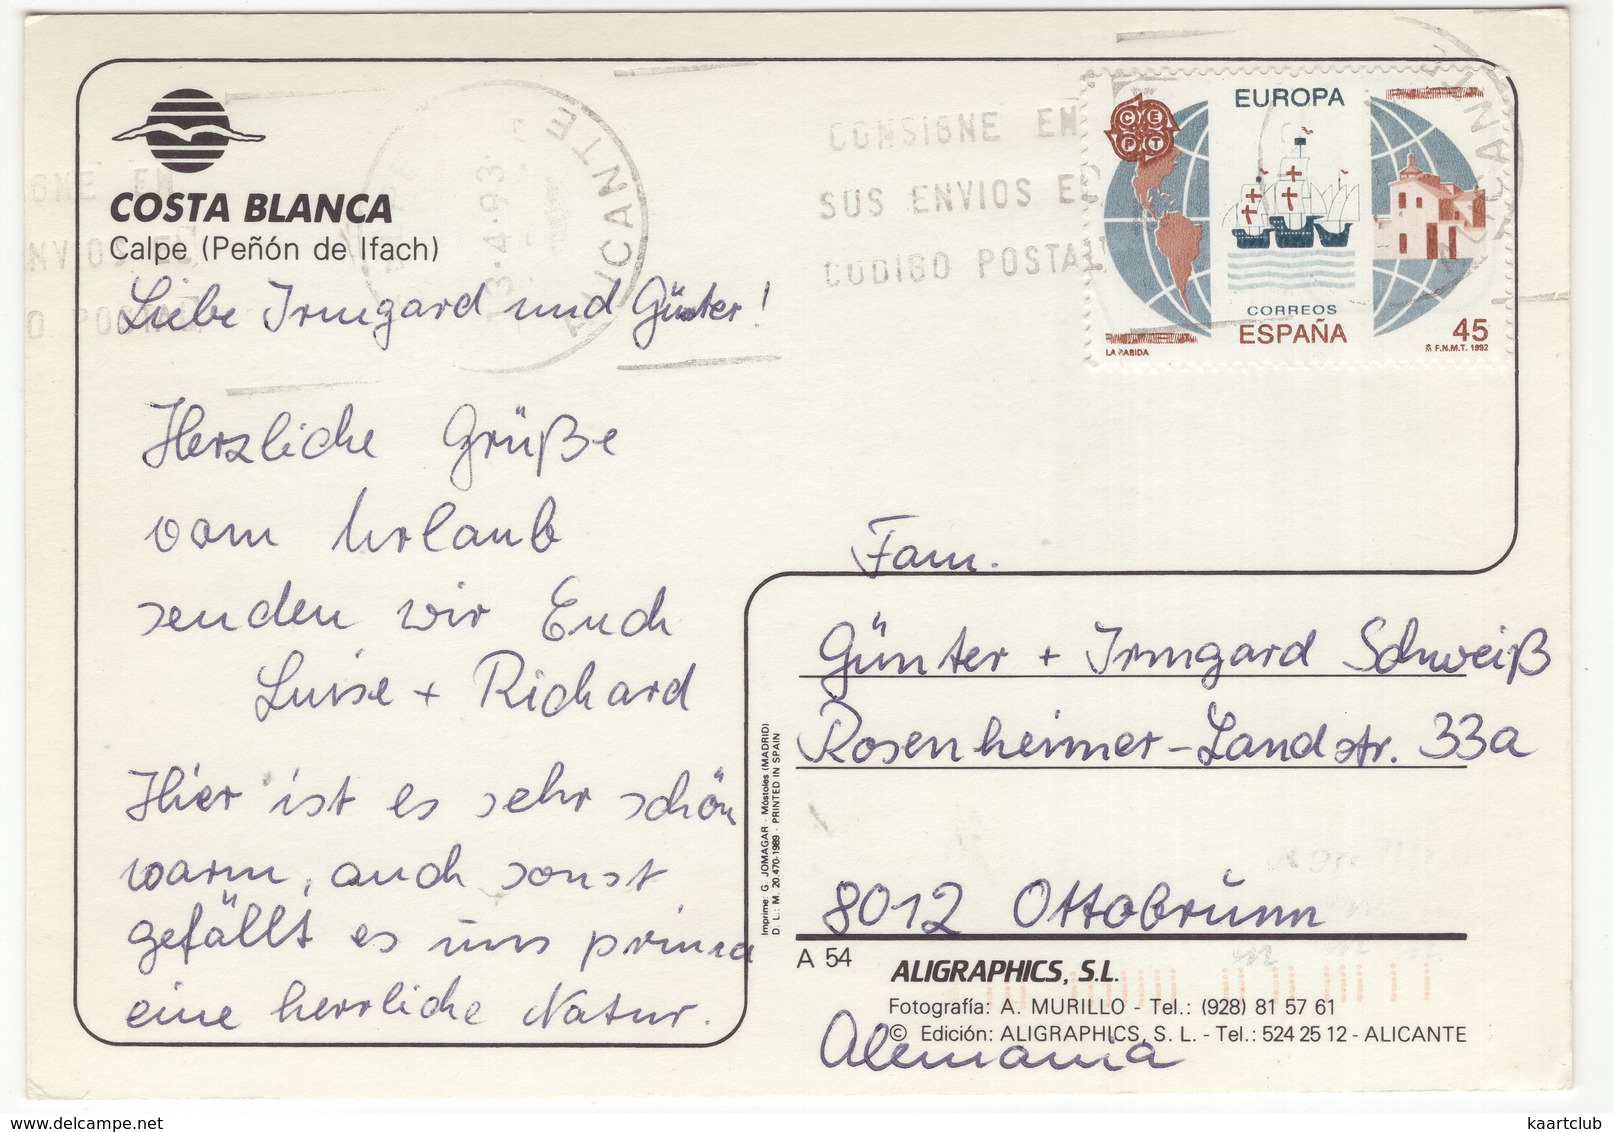 COSTA BLANCA
Calpe (Peñón de Ifach)
Liebe Irmgard und Günter!
Herzliche Grüße
vom Urlaub
senden wir Euch
Luise + Richard
Hier ist es sehr schön
warm, auch sonst
gefällt es uns prima
eine herrliche Natur.
ALICANTE
3·4·93
CONSIGNE EN
SUS ENVIOS EL
CODIGO POSTAL
CEPT
EUROPA
CORREOS
ESPAÑA
45
LA RABIDA
F.N.M.T. 1992
Fam.
Günter + Irmgard Schweiß
Rosenheimer-Landstr. 33a
8012 Ottobrunn
Alemania
Imprime: G. JOMAGAR - Móstoles (MADRID)
D. L.: M. 20.470-1989 - PRINTED IN SPAIN
A 54
ALIGRAPHICS, S.L.
Fotografía: A. MURILLO - Tel.: (928) 81 57 61
© Edición: ALIGRAPHICS, S. L. - Tel.: 524 25 12 - ALICANTE
www.delcampe.net
kaartclub